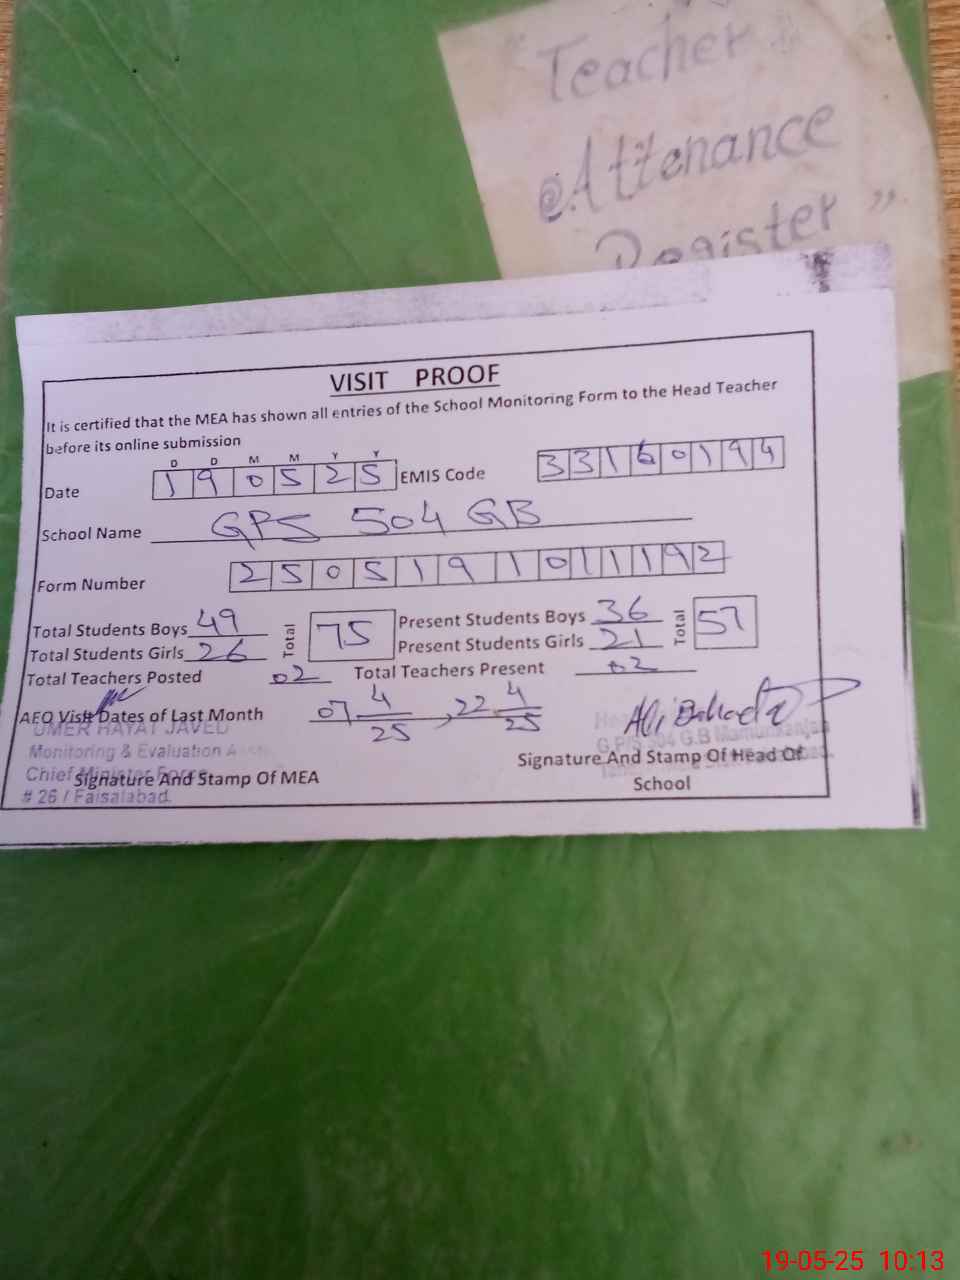 "Teacher
Attenance
Register"
VISIT PROOF
It is certified that the MEA has shown all entries of the School Monitoring Form to the Head Teacher
before its online submission
D D M M Y Y
Date 1 9 0 5 2 5 EMIS Code 3 3 1 6 0 1 9 4
School Name GPS 504 GB
Form Number 2 5 0 5 1 9 1 0 1 1 1 9 2
Total Students Boys 49 Total 75 Present Students Boys 36 Total 57
Total Students Girls 26 Present Students Girls 21
Total Teachers Posted 02 Total Teachers Present 02
AEO Visit Dates of Last Month 07 4/25, 22 4/25
UMER HAYAT JAVED
Monitoring & Evaluation
Chief Minister
# 26 / Faisalabad.
Signature And Stamp Of MEA
G.P/S 504 G.B Mamunkanjan
Signature And Stamp Of Head Of
School
19-05-25 10:13